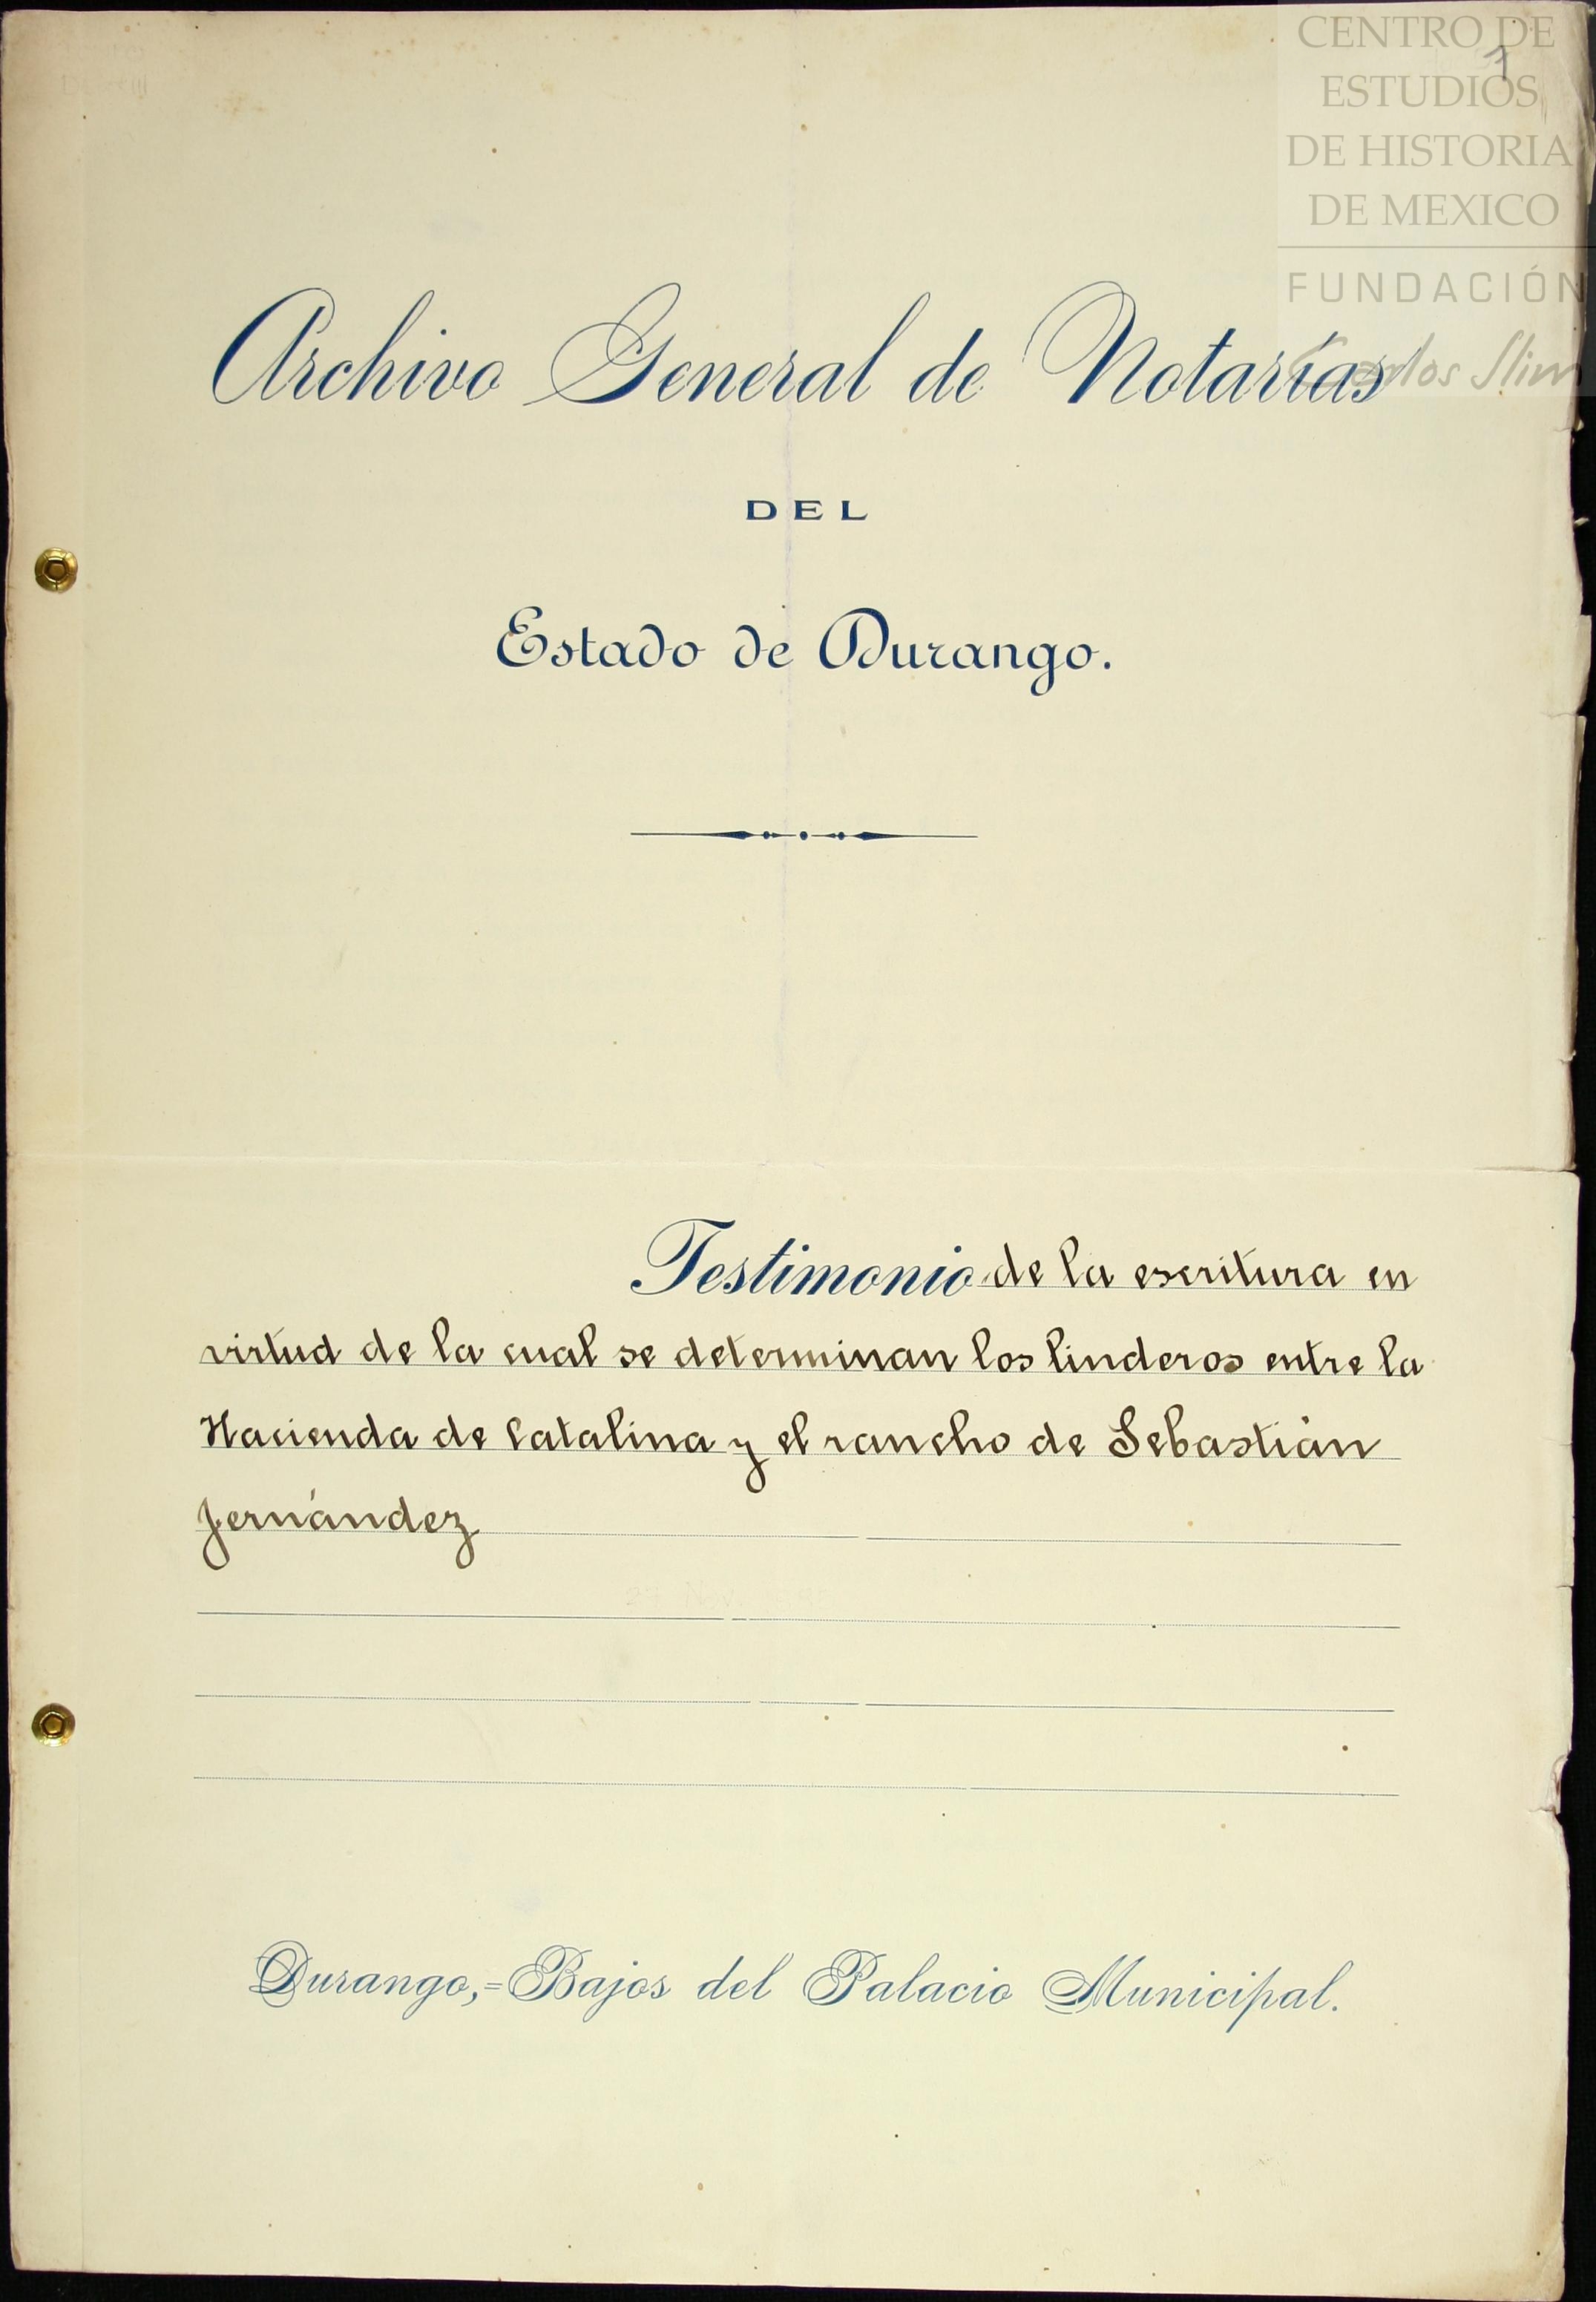 CENTRO DE
ESTUDIOS
DE HISTORIA
DE MEXICO
FUNDACIÓN
Carlos Slim
1
Archivo General de Notarías
DEL
Estado de Durango.
Testimonio de la escritura en
virtud de la cual se determinan los linderos entre la
Hacienda de Catalina y el rancho de Sebastián
Fernández
Durango,=Bajos del Palacio Municipal.